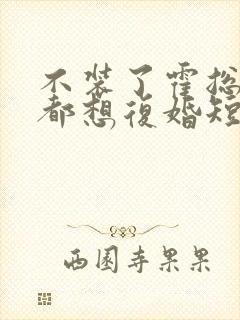 不装了霍
都想復婚短
西園寺果果